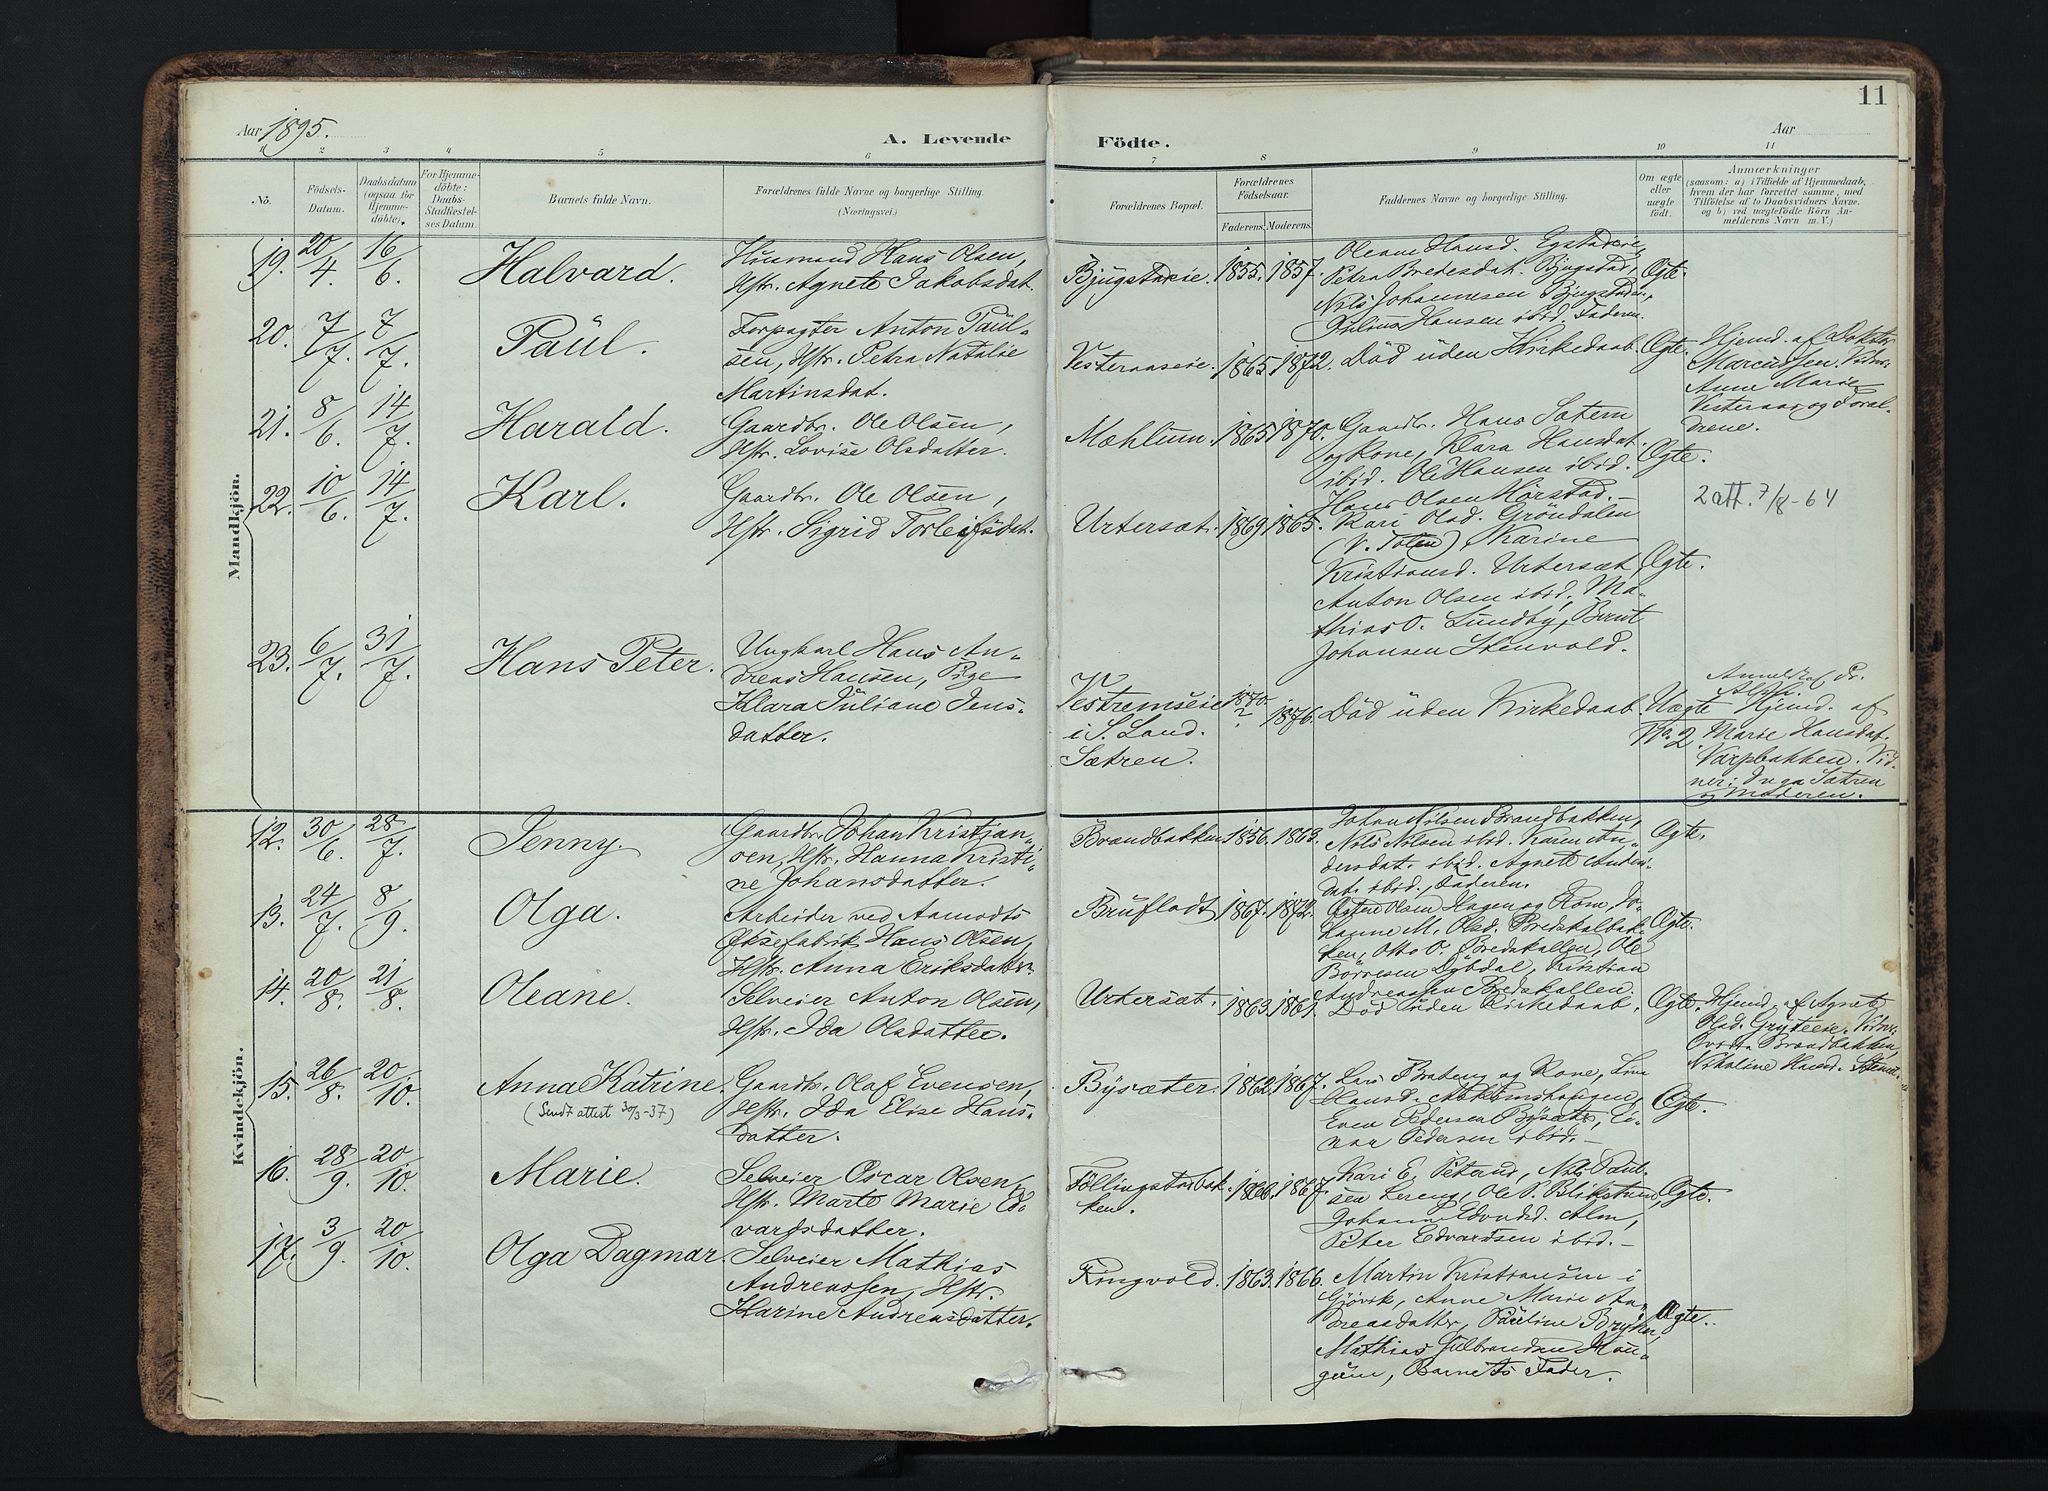 11
Aar 1895.
A. Levende
Födte.
Aar
1 2 3 4 5 6 7 8 9 10 11
No.
Födsels-
Datum.
Daabsdatum
(ogsaa for
Hjemme-
döbte).
For Hjemme-
döbte:
Daabs-
Stadfæstel-
ses Datum.
Barnets fulde Navn.
Forældrenes fulde Navne og borgerlige Stilling.
(Næringsvei.)
Forældrenes Bopæl.
Forældrenes
Födselsaar.
Faderens. Moderens.
Faddernes Navne og borgerlige Stilling.
Om ægte
eller
uægte
födt.
Anmærkninger
(saasom: a) i Tilfælde af Hjemmedaab,
hvem der har forrettet samme, med
Tilföielse af to Daabsvidners Navne.
og b) ved uægtefödte Börn An-
melderens Navn m. V.)
Mandkjön.
19. 20/4. 16/6. Halvard.
Husmand Hans Olsen,
Hstr. Agnete Jakobsdat.
Bjugstadeie. 1855. 1857.
Oleane Hansd. Egstadeie,
Petra Bredesdat. Bjugstad,
Nils Johannesen Bjugstadeie,
Julius Hansen ibid. Faderen.
Ægte.
20. 7/7. 7/7. Paul.
Forpagter Anton Paul-
sen, Hstr. Petra Natalie
Martinsdat.
Vesteraaseie. 1865. 1872. Död uden Kirkedaab. Ægte.
Hjemd. af Doktor
Marcussen. Vidner:
Anne Marie
Vesteraas, og
21. 8/6. 14/7. Harald.
Gaardbr. Ole Olsen,
Hstr. Lovise Olsdatter.
Mæhlum. 1865 1870.
Gaardbr. Hans Sætern
og Kone, Klara Hansdat.
ibid. Ole Hansen ibid.
Hans Olsen Hörstad.
Ægte.
22. 10/6. 14/7. Karl.
Gaardbr. Ole Olsen,
Hstr. Sigrid Torleifsdat.
Urtersæt. 1869. 1865.
Kari Olsd. Gröndalen
(V. Toten), Karine
Kristiansd. Urtersæt,
Anton Olsen ibid, Ma-
thias O. Lundby, Bernt
Johansen Stenvold.
Ægte.
2 att. 7/8-64
23. 6/7. 31/7. Hans Peter.
Ungkarl Hans An-
dreas Hansen, Pige
Klara Juliane Jens-
datter.
Vestrumseie
i S. Land.
Sætren.
1870. ? 1876. Död uden Kirkedaab. Uægte
No. 2.
Anmeldt af Dr.
Hjemd. af
Marie Hansdat.
Varpbakken. Vid-
ner: Inga Sætren
og Moderen.
Kvindekjön.
12. 30/6. 28/7. Jenny.
Gaardbr. Johan Kristian-
sen, Hstr. Hanna Kristi-
ne Johansdatter.
Brandbakken 1856. 1863.
Johan Nilsen Brandbakken,
Nils Nilsen ibid. Karen An-
dersdat. ibid. Agnete Anders-
dat. ibid., Faderen.
Ægte.
13. 24/7. 8/9. Olga.
Arbeider ved Aamodts
Öksefabrik Hans Olsen,
Hstr. Anna Eriksdatter.
Brufladt, 1867. 1872.
Olsen Hagen og Kone, Jo-
hanne M. Olsd. Bredskalbak-
ken, Otto O. Bredskallen, Ole
Börresen Dybdal, Kristian
Andreassen Bredskallen.
Ægte.
14. 20/8. 21/8. Oleane.
Selveier Anton Olsen,
Hstr. Ida Olsdatter.
Urtersæt. 1863. 1861. Död uden Kirkedaab. Ægte.
Hjemd. af Agnete
Olsd. Gryteeie. Vidner:
Brandbakken,
Nikoline Hansd.
15. 26/8. 20/10. Anna Katrine.
(Sendt attest 30/3-37)
Gaardbr. Olaf Evensen,
Hstr. Ida Elise Hans-
datter.
Bysæter. 1862. 1867.
Lars Brateng og Kone,
Hansd.
Even Pedersen Bysæter, Ei-
nar Pedersen ibid.
Ægte.
16. 28/9. 20/10. Marie.
Selveier Oscar Olsen,
Hstr. Marte Marie Ed-
vardsdatter.
Föllingstadbak-
ken. 1868. 1867.
Kari E. Nils Paul-
sen Lereng, Ole P.
Johanne Edvardsd. Alm,
Peter Edvardsen ibid.
Ægte.
17. 3/9. 20/10. Olga Dagmar.
Selveier Mathias
Andreassen, Hstr.
Karine Andreasdatter.
Ringvold. 1863. 1866.
Martin Kristiansen i
Gjövik, Anne Marie An-
dreasdatter, Pauline
Mathias Gulbrandsen Hau-
gum, Barnets Fader.
Ægte.